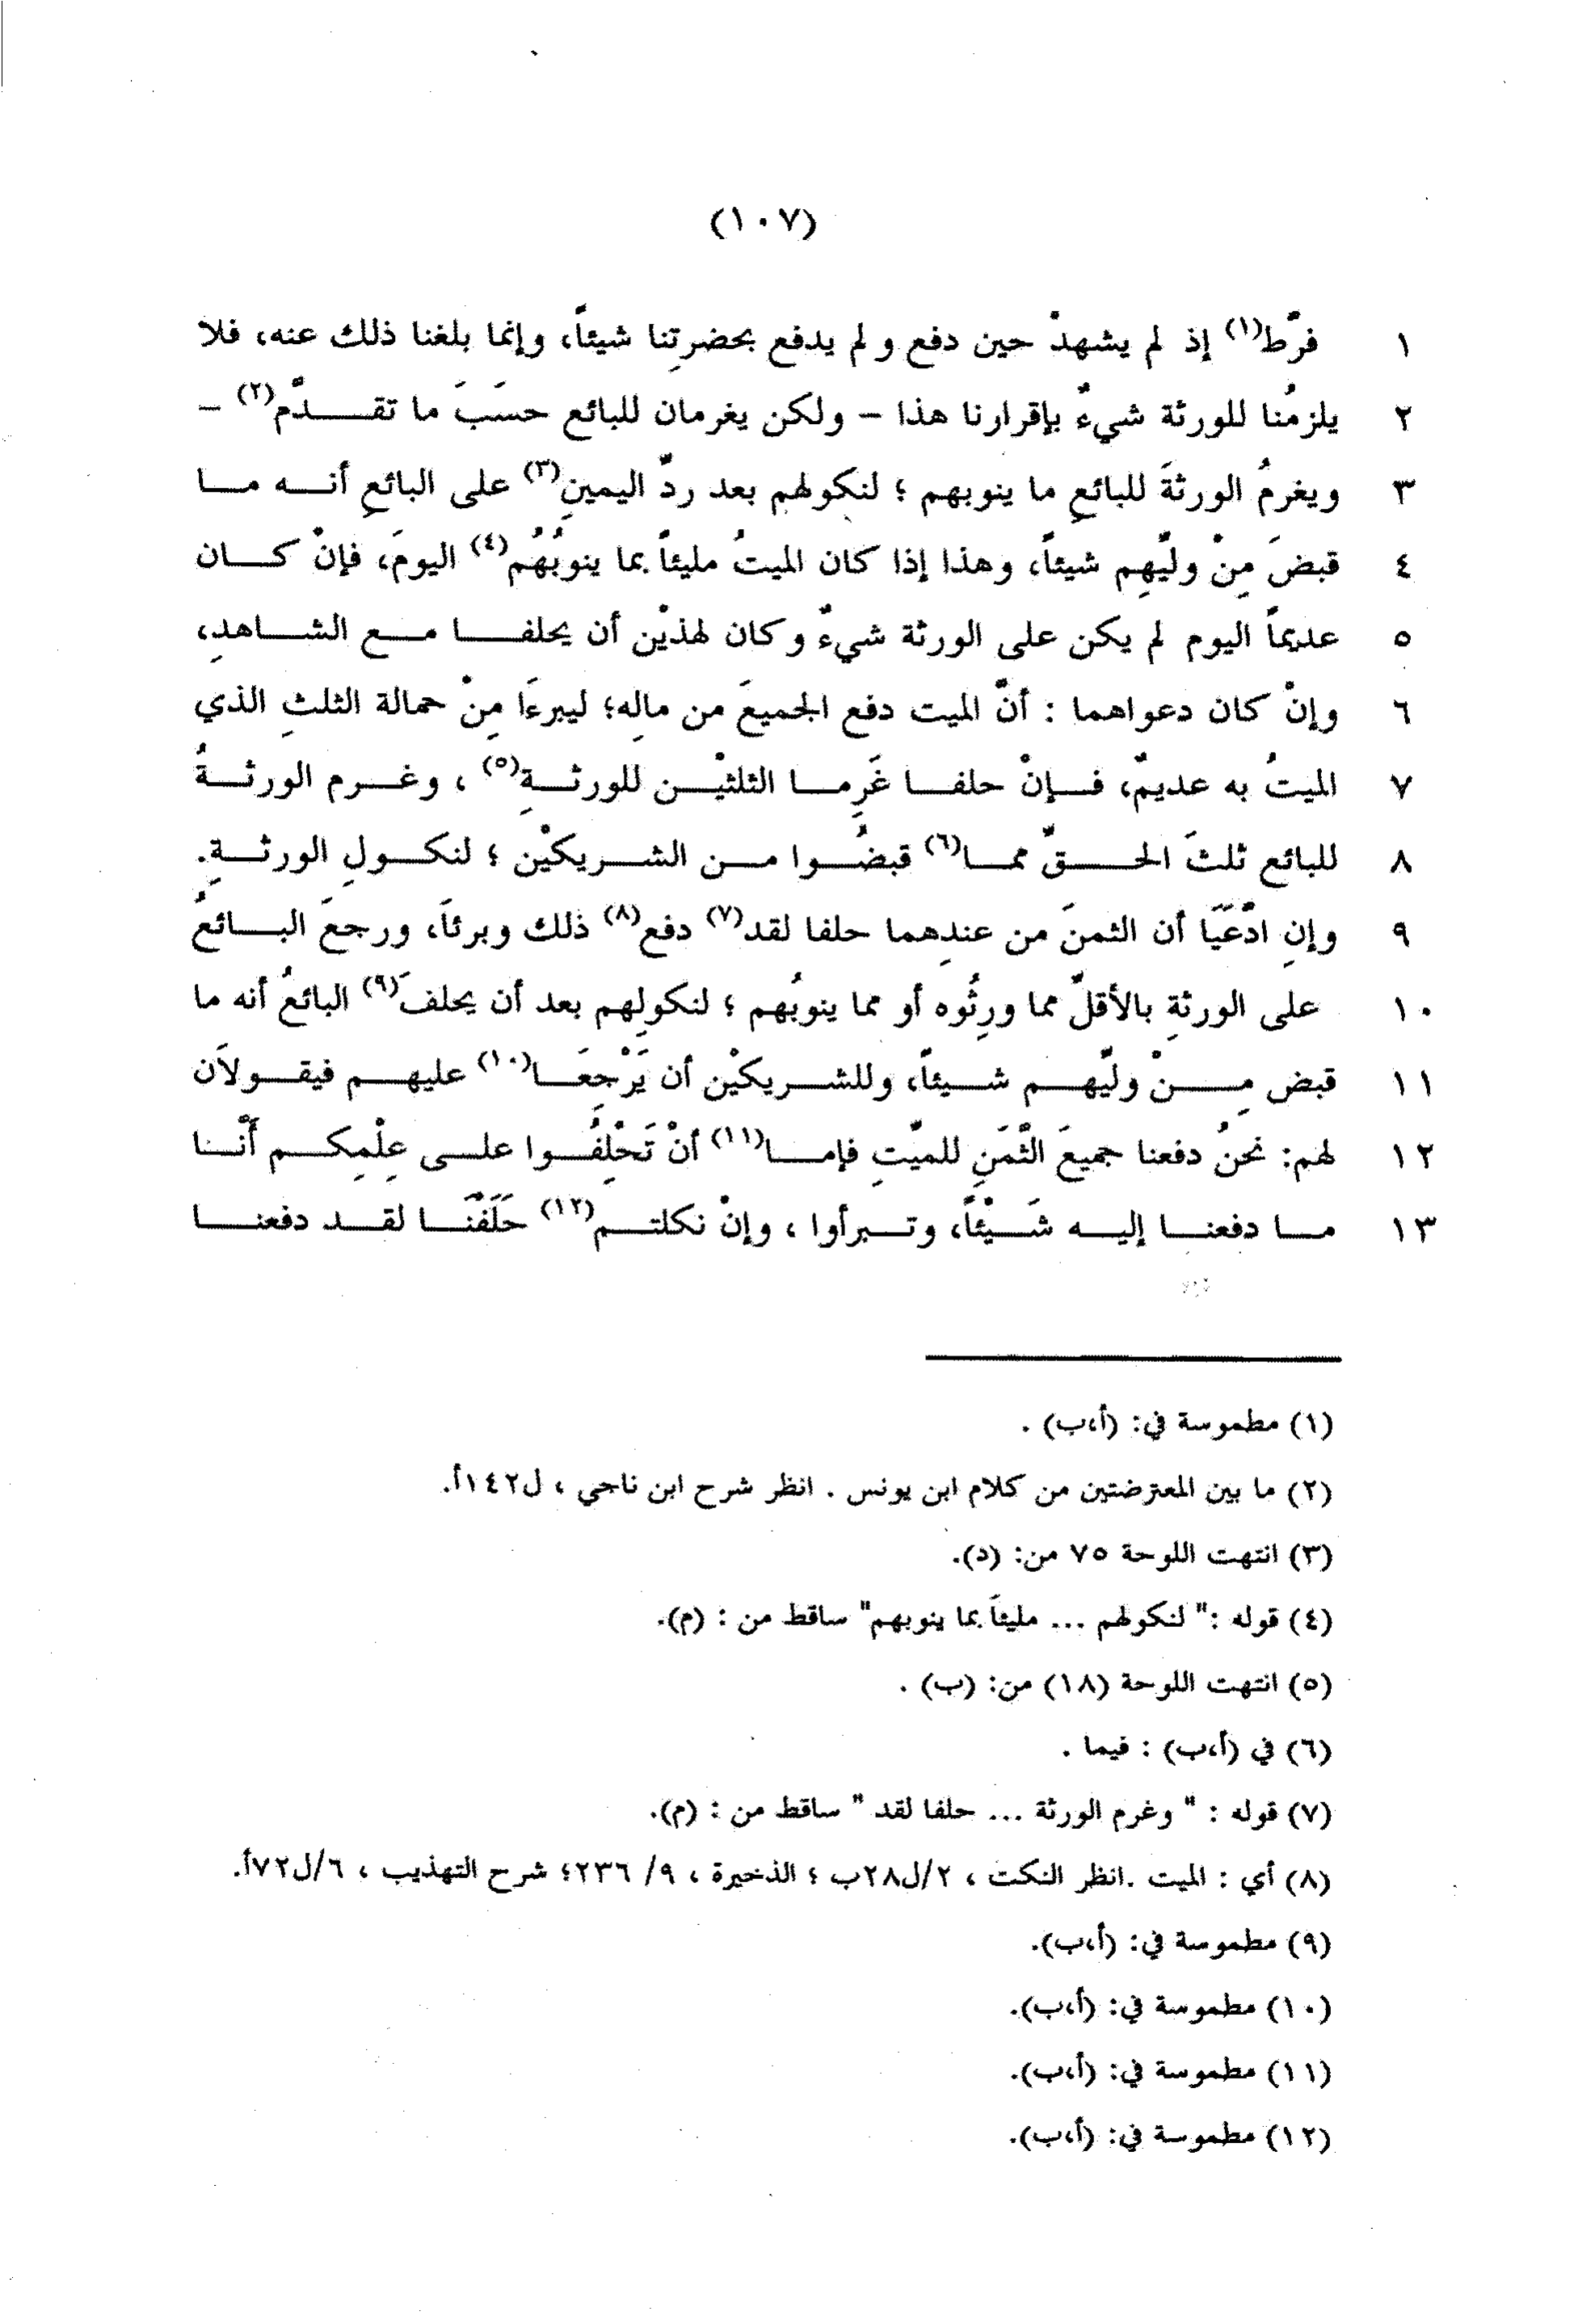 (١٠٧)
١ فرّط(١) إذ لم يشهدْ حين دفع ولم يدفع بحضرتِنا شيئاً، وإنما بلغنا ذلك عنه، فلا
٢ يلزمُنا للورثة شيءٌ بإقرارنا هذا – ولكن يغرمان للبائع حسَبَ ما تقدّم(٢) –
٣ ويغرمُ الورثةَ للبائعِ ما ينوبهم ؛ لنكولهم بعد ردّ اليمينِ(٣) على البائعِ أنه ما
٤ قبضَ مِنْ وليّهِم شيئاً، وهذا إذا كان الميتُ مليئاً بما ينوبُهُم(٤) اليومَ، فإنْ كان
٥ عديماً اليوم لم يكن على الورثة شيءٌ وكان لهذيْن أن يحلفا مع الشاهدِ،
٦ وإنْ كان دعواهما : أنّ الميت دفع الجميعَ من مالِه؛ ليبرءَا مِنْ حمالة الثلثِ الذي
٧ الميتُ به عديمٌ، فإنْ حلفا غَرِما الثلثيْن للورثةِ(٥) ، وغرم الورثةُ
٨ للبائع ثلثَ الحقّ مما(٦) قبضُوا من الشريكيْن ؛ لنكولِ الورثةِ.
٩ وإنِ ادّعَيَا أن الثمنَ من عندِهما حلفا لقد(٧) دفع(٨) ذلك وبرئاَ، ورجعَ البائعُ
١٠ على الورثةِ بالأقلّ مما ورِثُوه أو مما ينوبُهم ؛ لنكولِهم بعد أن يحلفَ(٩) البائعُ أنه ما
١١ قبض مِنْ وليّهم شيئاً، وللشريكيْن أن يَرْجِعَا(١٠) عليهم فيقولاَن
١٢ لهم: نحنُ دفعنا جميعَ الثّمَنِ للميّتِ فإما(١١) أنْ تَحْلِفُوا على عِلْمِكم أنّنا
١٣ ما دفعنا إليه شَيْئاً، وتبرأوا ، وإنْ نكلتم(١٢) حَلَفْنَا لقد دفعنا
(١) مطموسة في: (أ،ب) .
(٢) ما بين المعترضتين من كلام ابن يونس . انظر شرح ابن ناجي ، ل١٤٢أ.
(٣) انتهت اللوحة ٧٥ من: (د).
(٤) قوله :" لنكولهم ... مليئاً بما ينوبهم" ساقط من : (م).
(٥) انتهت اللوحة (١٨) من: (ب) .
(٦) في (أ،ب) : فيما .
(٧) قوله : " وغرم الورثة ... حلفا لقد " ساقط من : (م).
(٨) أي : الميت .انظر النكت ، ٢/ل٢٨ب ؛ الذخيرة ، ٩/ ٢٣٦؛ شرح التهذيب ، ٦/ل٧٢أ.
(٩) مطموسة في: (أ،ب).
(١٠) مطموسة في: (أ،ب).
(١١) مطموسة في: (أ،ب).
(١٢) مطموسة في: (أ،ب).